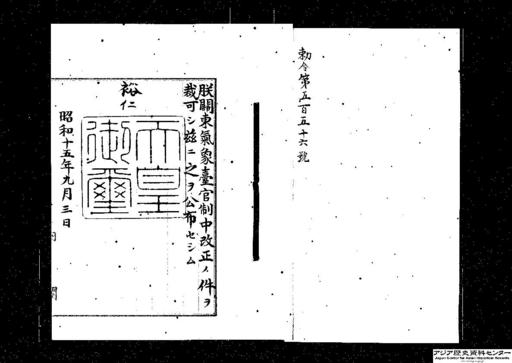 勅令第五百五十六號
朕關東氣象臺官制中改正ノ件ヲ
裁可シ茲ニ之ヲ公布セシム
裕仁
天皇
御璽
昭和十五年九月三日
内閣
アジア歴史資料センター
Japan Center for Asian Historical Records